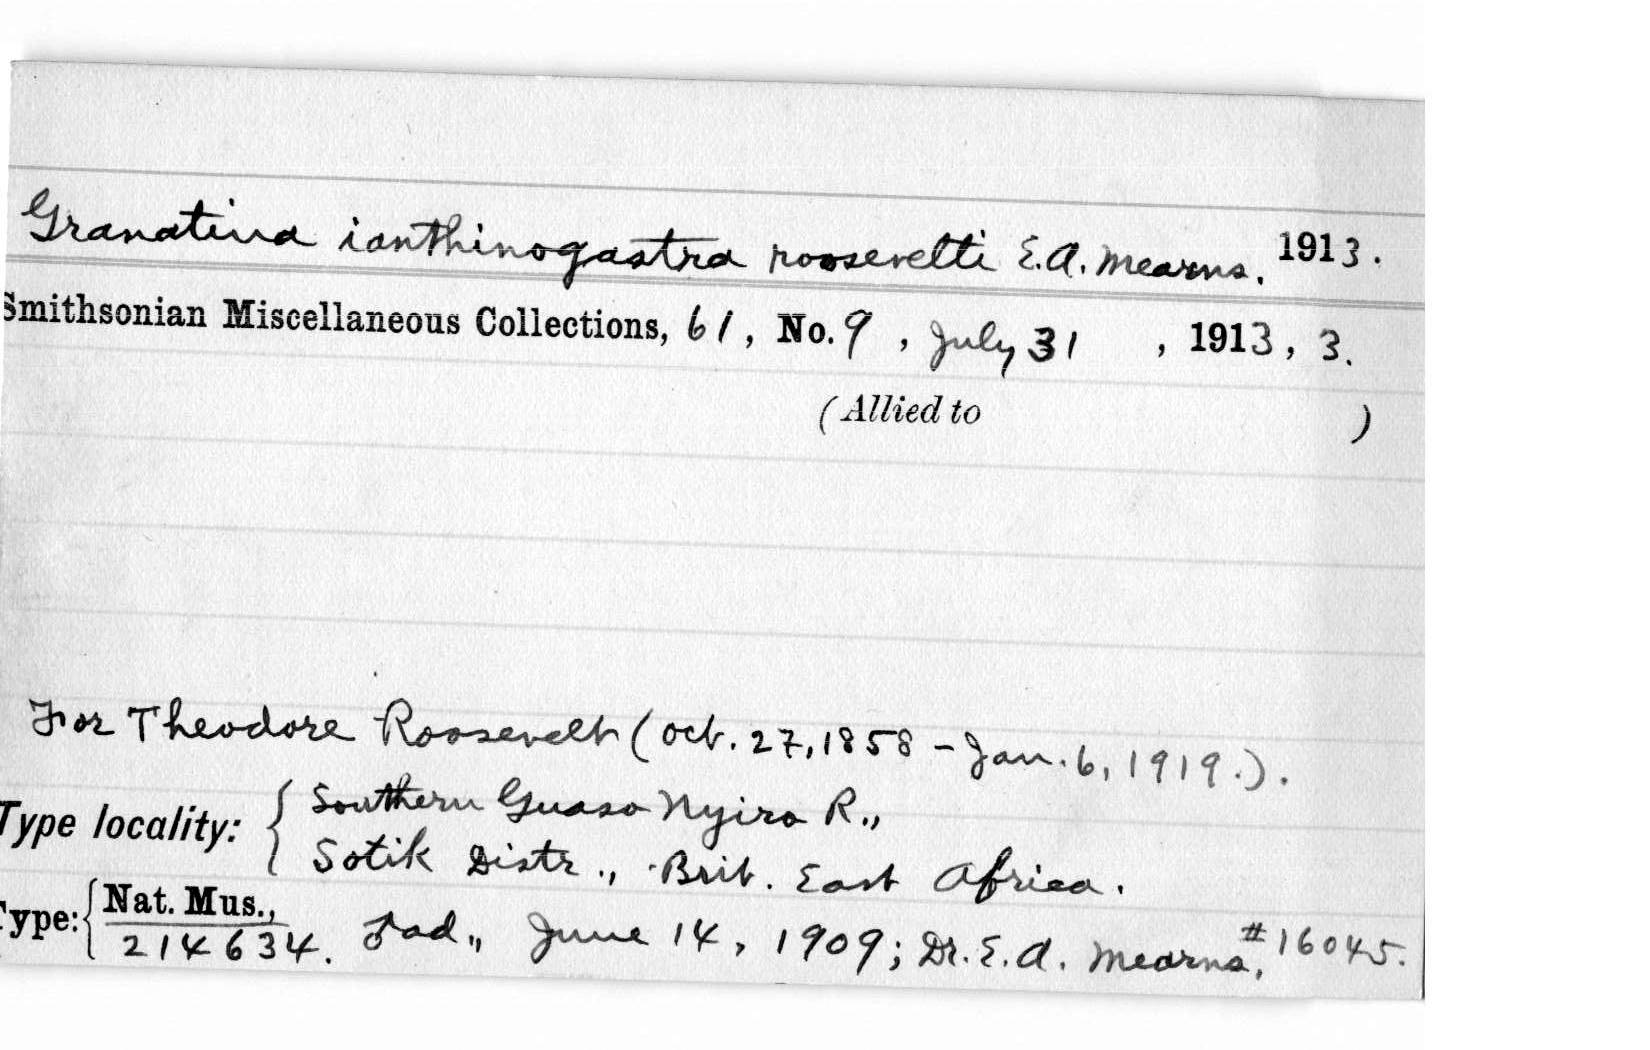 Granatina ianthinogastra roosevelti E.A. Mearns, 1913.
Smithsonian Miscellaneous Collections, 61, No. 9, July 31, 1913, 3.
(Allied to )
For Theodore Roosevelt (Oct. 27, 1858 - Jan. 6, 1919.).
Type locality: { Southern Guaso Nyiro R.,
Sotik Distr., Brit. East Africa.
Type: { Nat. Mus.,
214634. ♂ ad., June 14, 1909; Dr. E. A. Mearns, #16045.